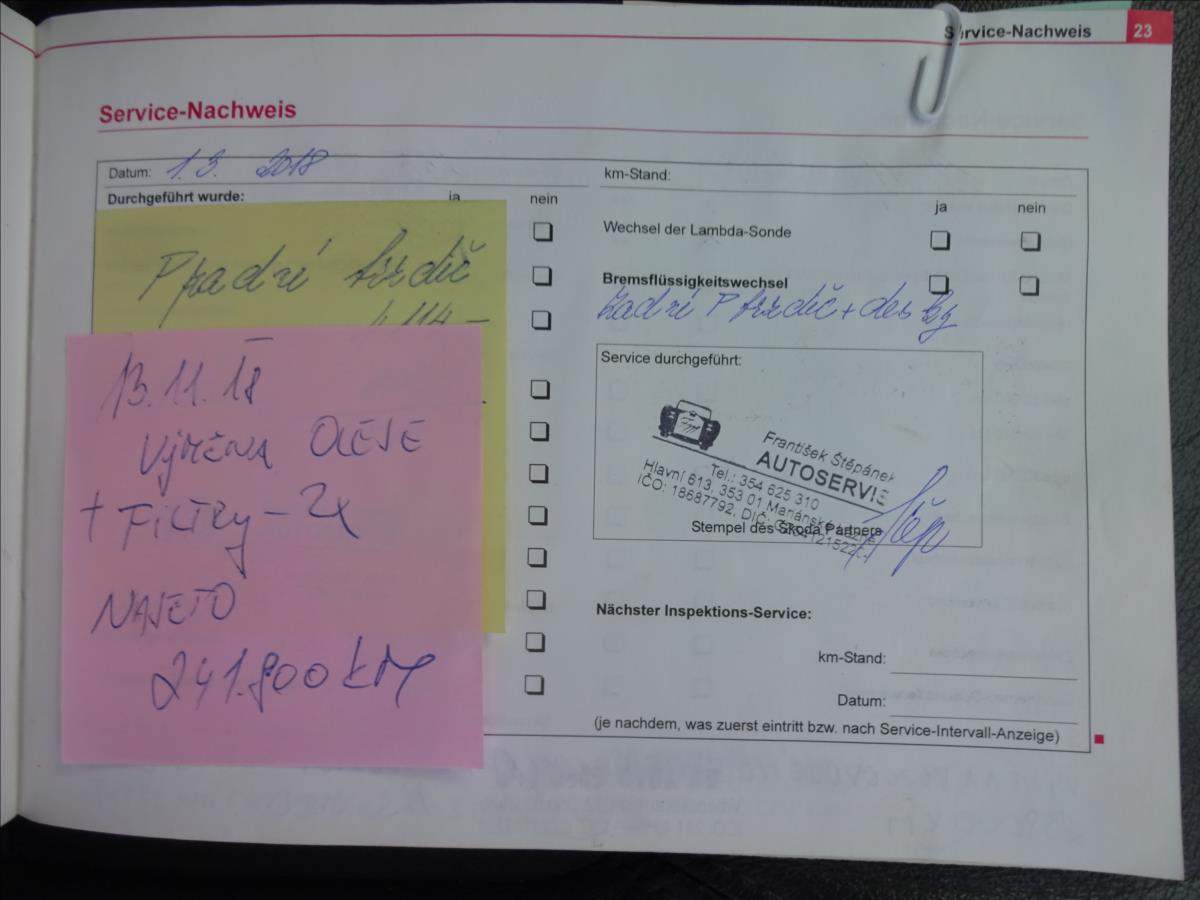 Service-Nachweis 23
Service-Nachweis
Datum: 1. 3. 2018
km-Stand:
Durchgeführt wurde: ja nein
ja nein
Wechsel der Lambda-Sonde
Bremsflüssigkeitswechsel
zadní P tlrdič + des
P zadní tlrdič
1.114,-
13.11.18
VÝMĚNA OLEJE
+ FILTRY - 2x
NAJETO
241.800 KM
Service durchgeführt:
František Štěpánek
AUTOSERVIS
Tel.: 354 625 310
Hlavní 613, 353 01 Mariánské Lázně
IČO: 18687792, DIČ:
Stempel des Škoda Partners
Nächster Inspektions-Service:
km-Stand:
Datum:
(je nachdem, was zuerst eintritt bzw. nach Service-Intervall-Anzeige)